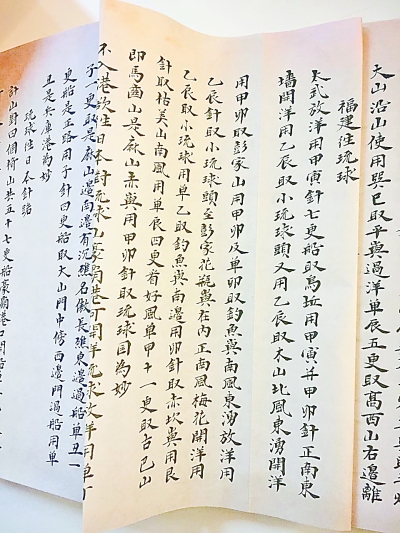 大山沿山使用巽巳取平嶼過洋單辰五更取高西山右邊離
福建往琉球
太武放洋用甲寅針七更船取烏坵用甲寅并甲卯針正南東
墻開洋用乙辰取小琉球頭又用乙辰取木山北風東湧開洋
用甲卯取彭家山用甲卯及單卯取釣魚嶼南風東湧放洋用
乙辰針取小琉球頭至彭家花瓶嶼在內正南風梅花開洋用
乙辰取小琉球用單乙取釣魚嶼南邊用卯針取赤坎嶼用艮
針取枯美山南風用單辰四更看好風單甲十一更取古巴山
即馬齒山是麻山赤嶼用甲卯針取琉球國為妙
不入港欲往日本對琉球山豪霸港可開洋琉球放洋用單丁
子一更取是麻山邊南邊有沉礁名傲長礁東邊過船單丑一
更船是正路用子針四更船取大山門中傍西邊門過船用單
丑是兵庫港為妙
琉球往日本針路
針山對四個椅山共五十七更船豪霸港口開船